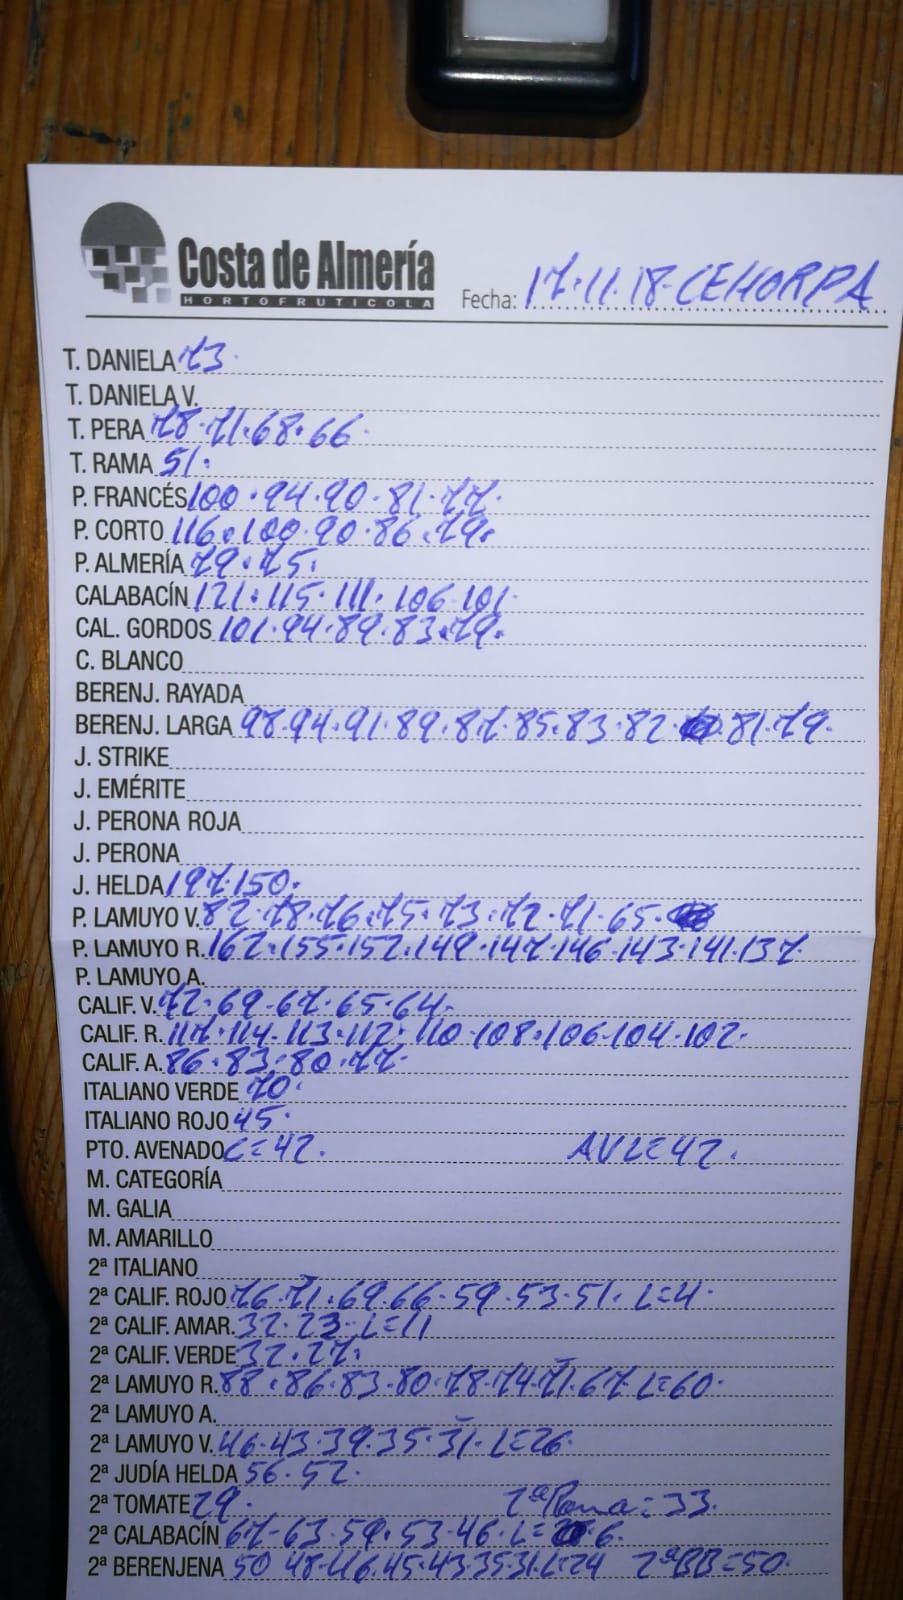 Costa de Almería
HORTOFRUTICOLA
Fecha: 17.11.18. CEHORPA
T. DANIELA 73.
T. DANIELA V.
T. PERA 78.71.68.66.
T. RAMA 51.
P. FRANCÉS 100.94.90.81.77.
P. CORTO 116.100.90.86.79.
P. ALMERÍA 79.75.
CALABACÍN 121.115.111.106.101.
CAL. GORDOS 101.94.89.83.79.
C. BLANCO
BERENJ. RAYADA
BERENJ. LARGA 98.94.91.89.87.85.83.82. 81.79.
J. STRIKE
J. EMÉRITE
J. PERONA ROJA
J. PERONA
J. HELDA 197.150.
P. LAMUYO V. 82.78.76.75.73.72.71.65.
P. LAMUYO R. 162.155.152.149.147.146.143.141.137.
P. LAMUYO A.
CALIF. V. 72.69.67.65.64.
CALIF. R. 117.114.113.112.110.108.106.104.102.
CALIF. A. 86.83.80.77.
ITALIANO VERDE 70.
ITALIANO ROJO 45.
PTO. AVENADO L=42. AVL=42.
M. CATEGORÍA
M. GALIA
M. AMARILLO
2ª ITALIANO
2ª CALIF. ROJO 76.71.69.66.59.53.51. L=4.
2ª CALIF. AMAR. 32.23. L=11
2ª CALIF. VERDE 32.27.
2ª LAMUYO R. 88.86.83.80.78.74.71.67. L=60.
2ª LAMUYO A.
2ª LAMUYO V. 46.43.39.35.31. L=26.
2ª JUDÍA HELDA 56.52.
2ª TOMATE 29. 2ª =33.
2ª CALABACÍN 67.63.59.53.46. L= 6.
2ª BERENJENA 50.48.46.45.43.35.31.L=24 2ªBB=50.